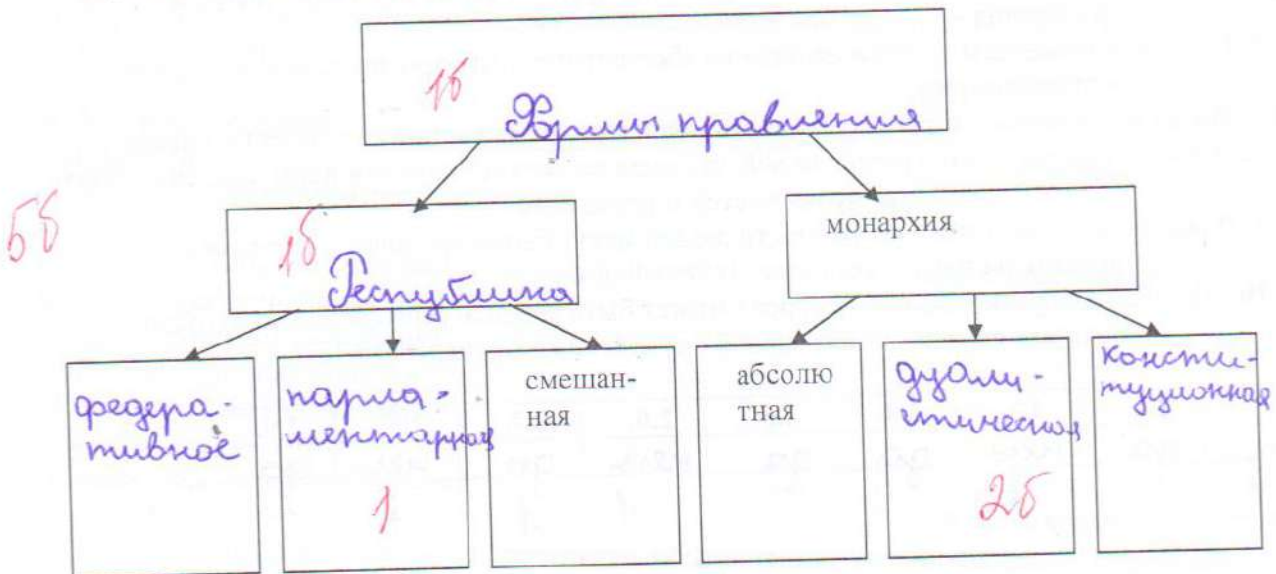 1б
Формы правления
5б
1б
Республика
монархия
федера-
тивное
парла-
ментарная
1
смешан-
ная
абсолю
тная
дуали-
стическая
2б
консти-
туционная